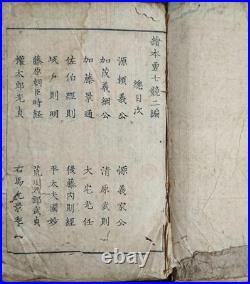 繪本勇七競二編
總目次
源頼義公　源義家公
加茂義綱公　清原武則
加藤景通　大宅光任
佐伯經則　後藤内則經
城戸則明　平太夫國妙
藤原朝臣時経　荒川太郎武貞
權太郎光貞